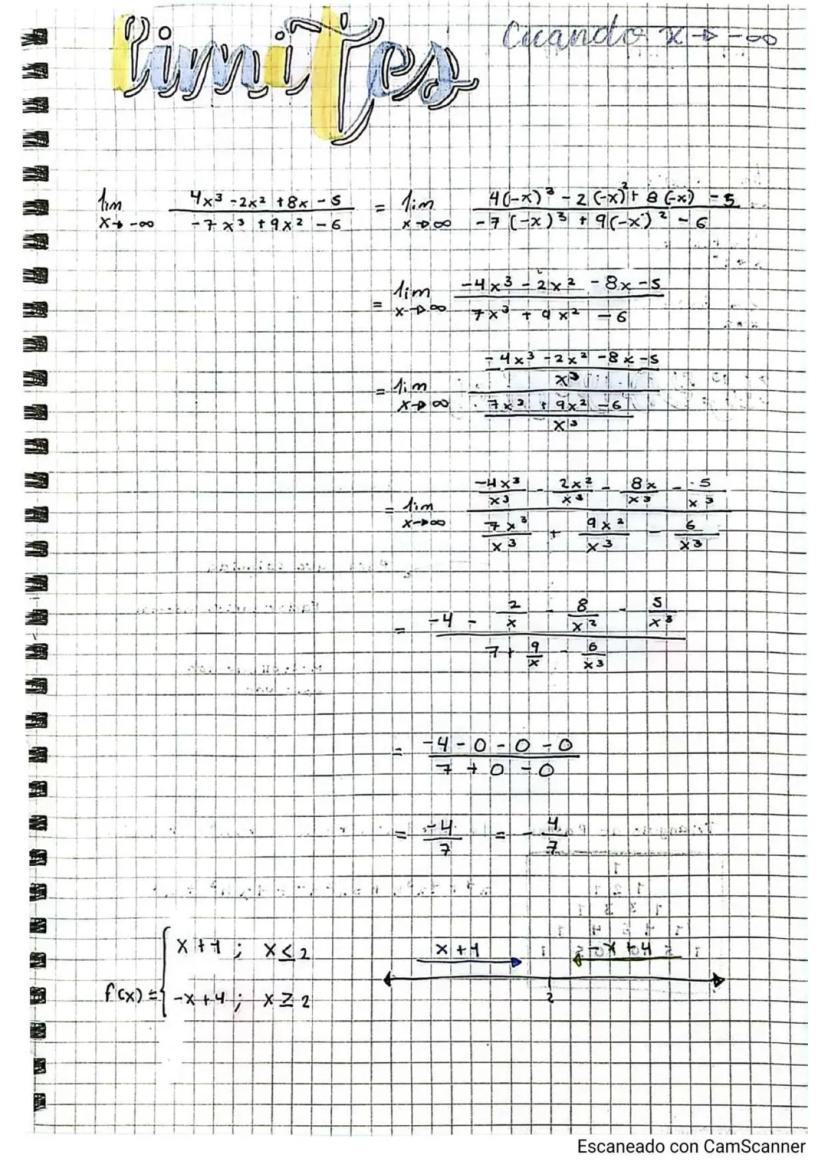 Limites Cuando x → -∞
lim x→-∞ (4x³ - 2x² + 8x - 5)/(-7x³ + 9x² - 6) = lim x→∞ (4(-x)³ - 2(-x)² + 8(-x) - 5)/(-7(-x)³ + 9(-x)² - 6)
= lim x→∞ (-4x³ - 2x² - 8x - 5)/(7x³ + 9x² - 6)
= lim x→∞ ((-4x³ - 2x² - 8x - 5)/x³)/((7x³ + 9x² - 6)/x³)
= lim x→∞ (-4x³/x³ - 2x²/x³ - 8x/x³ - 5/x³)/(7x³/x³ + 9x²/x³ - 6/x³)
= (-4 - 2/x - 8/x² - 5/x³)/(7 + 9/x - 6/x³)
= (-4 - 0 - 0 - 0)/(7 + 0 - 0)
= -4/7 = - 4/7
f(x) = { x + 1 ; x ≤ 2
-x + 4 ; x ≥ 2
x + 1 -x + 4
2
Escaneado con CamScanner